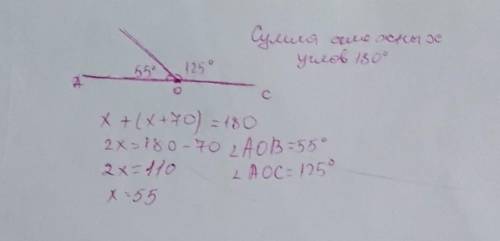 Сумма смежных
углов 180°
55° 125°
A O C
x + (x + 70) = 180
2x = 180 - 70 ∠AOB = 55°
2x = 110 ∠AOC = 125°
x = 55